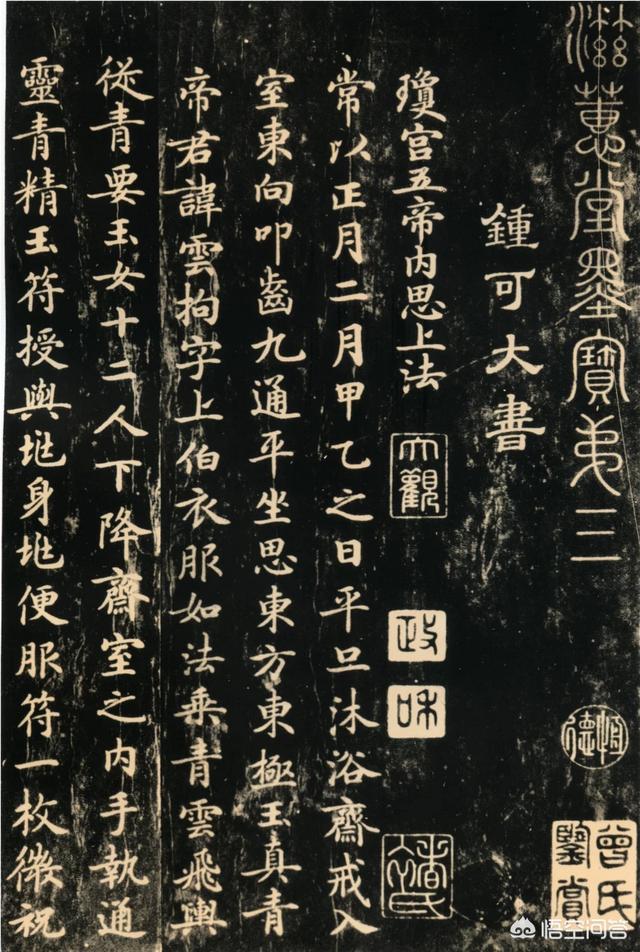 滋蕙堂墨寶弟三
恒德
曾氏鑒賞
鍾可大書
瓊宮五帝內思上法
大觀
政和
常以正月二月甲乙之日平旦沐浴齋戒入
室東向叩齒九通平坐思東方東極玉真青
帝君諱雲拘字上伯衣服如法乘青雲飛輿
從青要玉女十二人下降齋室之內手執通
靈青精玉符授與兆身兆便服符一枚微祝
悟空问答